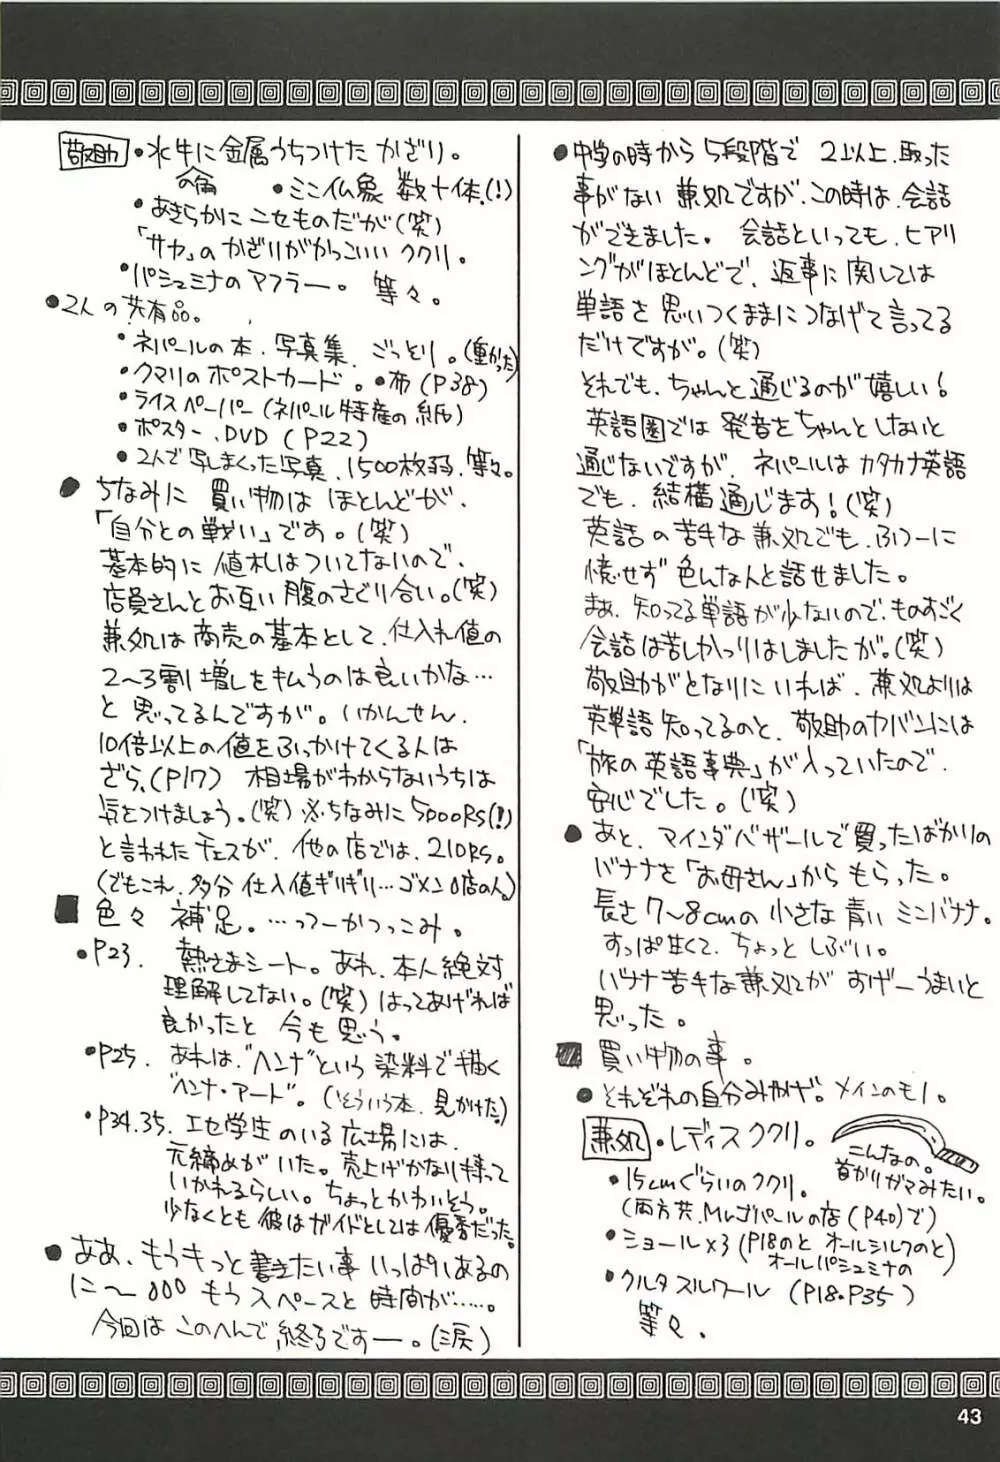 ●中学の時から5段階で 2以上、取った
事がない 兼処ですが、この時は、会話
ができました。 会話といっても、ヒアリ
ングがほとんどで、返事に関しては
単語を思いつくままにつなげて言ってる
だけですが。(笑)
それでも、ちゃんと通じるのが嬉しい!
英語圏では発音をちゃんとしないと
通じないですが、ネパールはカタカナ英語
でも、結構通じます!(笑)
英語の苦手な兼処でも、ふつーに
憶せず色んな人と話せました。
まぁ、知ってる単語が少ないので、ものすごく
会話は苦しかったりはしましたが。(笑)
敬助がとなりにいれば、兼処よりは
英単語知ってるのと、敬助のカバンには
「旅の英語事典」が入っていたので、
安心でした。(笑)
●あと、マインダバザールで買ったばかりの
バナナを「お母さん」からもらった。
長さ7〜8cmの小さな青いミニバナナ。
すっぱ甘くて、ちょっとしぶい。
バナナ苦手な兼処がすげーうまいと
思った。
■買い物の事。
●それぞれの自分みやげ。メインのモノ。
兼処・レディスククリ。
こんなの。
首かりガマみたい。
・15cmぐらいのククリ。
(両方共、Mr.ゴパールの店(P40)で)
・ショール×3(P18のと オールシルクのと)
オールパシュミナの
・クルタスルワール (P18・P35)
等々。
敬助・水牛に金属うちつけたかざり。
の角
・ミニ仏象 数十体。(!)
・あきらかにニセものだが(笑)
「サヤ」のかざりがかっこいいククリ。
・パシュミナのマフラー。 等々。
●2人の共有品。
・ネパールの本、写真集、ごっそり。(重かった)
・クマリのポストカード。・布(P38)
・ライスペーパー(ネパール特産の紙)
・ポスター、DVD(P22)
・2人で写しまくった写真、1500枚弱、等々。
●ちなみに 買い物は ほとんどが、
「自分との戦い」です。(笑)
基本的に値札はついてないので、
店員さんとお互い腹のさぐり合い。(笑)
兼処は商売の基本として、仕入れ値の
2〜3割増しを払うのは良いかな…
と思ってるんですが。いかんせん、
10倍以上の値をふっかけてくる人は
ざら。(P17) 相場がわからないうちは
気をつけましょう。(笑)※ちなみに5000Rs(!)
と言われたチェスが、他の店では、210Rs。
(でもこれ、多分仕入値ギリギリ…ゴメンの店の人。)
■色々 補足。…ってーかつっこみ。
・P23. 熱さまシート。あれ、本人絶対
理解してない。(笑)はってあげれば
良かったと 今も思う。
・P25. あれは、"ヘンナ"という染料で描く
"ヘンナ・アート"。(そういう本、見かけた。)
・P34.35. エセ学生のいる広場には、
元締めがいた。売上げかなり持って
いかれるらしい。ちょっとかわいそう。
少なくとも彼はガイドとしては優秀だった。
●ああ、もうもっと書きたい事いっぱいあるの
に〜。。。もうスペースと時間が……。
今回は このへんで終了ですー。(涙)
43